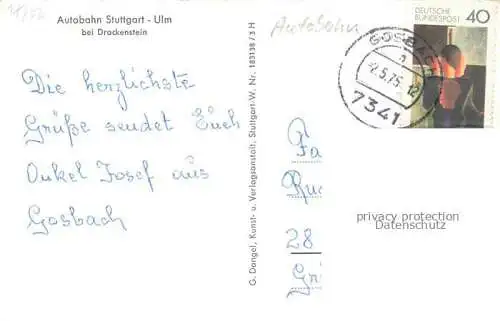 Autobahn Stuttgart - Ulm
bei Drackenstein
Die herzlichste
Grüße sendet Euch
Onkel Josef aus
Gosbach
G. Dangel, Kunst- u. Verlagsanstalt, Stuttgart-W. Nr. 183138 / 3 H
Autobahn
GOSBACH
a
2.5.75-12
7341
DEUTSCHE
BUNDESPOST
40
Fa
28
privacy protection
Datenschutz